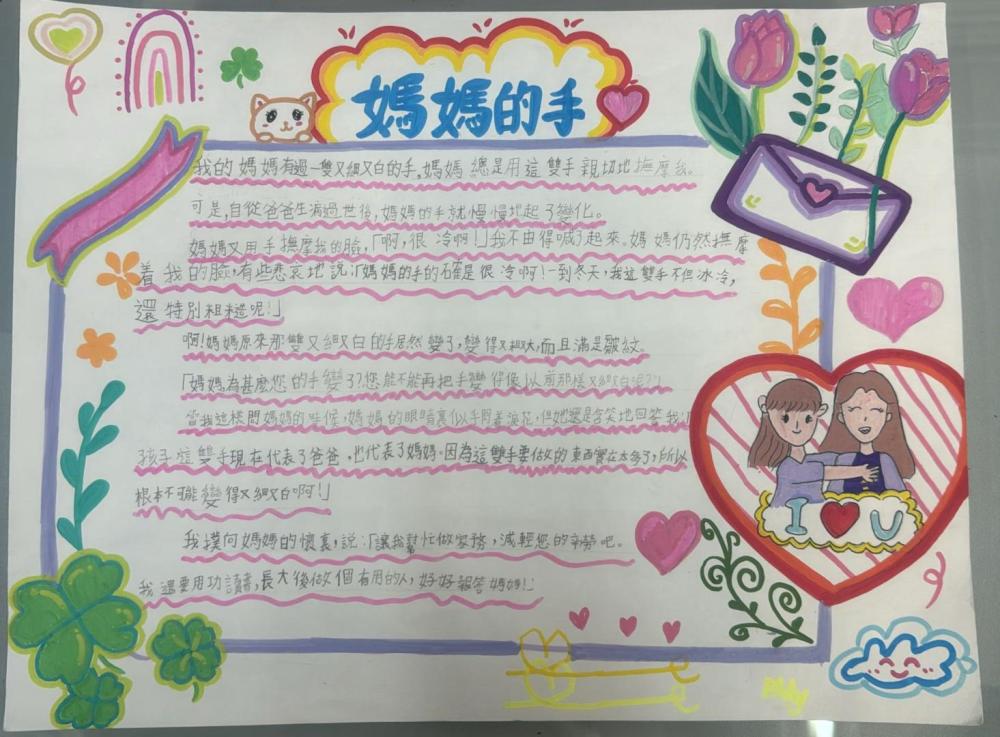 媽媽的手
我的媽媽有過一雙又細又白的手。媽媽總是用這雙手親切地撫摩我。
可是,自從爸爸生病過世後,媽媽的手就慢慢地起了變化。
媽媽又用手撫摩我的臉,「啊,很冷啊!」我不由得喊了起來。媽媽仍然撫摩
着我的臉,有些悲哀地說:「媽媽的手的確是很冷啊!一到冬天,我這雙手不但冰冷,
還特別粗糙呢!」
啊!媽媽原來那雙又細又白的手居然變了,變得又粗又大,而且滿是皺紋。
「媽媽,為甚麼您的手變了?您能不能再把手變得像以前那樣又細又白呢?」
當我這樣問媽媽的時候,媽媽的眼睛裏似乎閃着淚花,但她還是含笑地回答我:「
孩子,這雙手現在代表了爸爸,也代表了媽媽。因為這雙手要做的東西實在太多了,所以
根本不可能變得又細又白啊!」
我撲向媽媽的懷裏,說:「讓我幫忙做家務,減輕您的辛勞吧。
我還要用功讀書,長大後做個有用的人,好好報答媽媽!」
I U